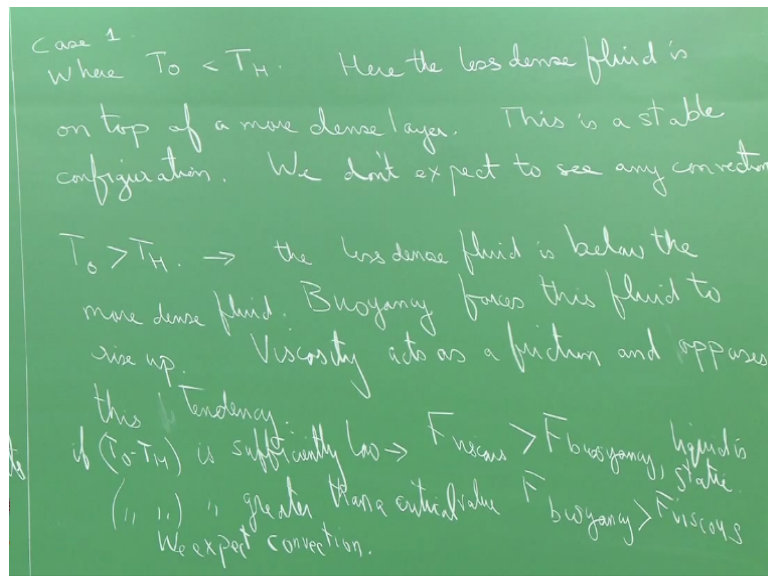 Case 1.
Where T₀ < T_H. Here the less dense fluid is
on top of a more dense layer. This is a stable
configuration. We don't expect to see any convection
T₀ > T_H. → the less dense fluid is below the
more dense fluid. Buoyancy forces this fluid to
rise up. Viscosity acts as a friction and opposes
this Tendency.
if (T₀-T_H) is sufficiently low → F viscous > F buoyancy, liquid is
static.
(,, ,,) ,, greater than a critical value F buoyancy > F viscous
We expect convection.